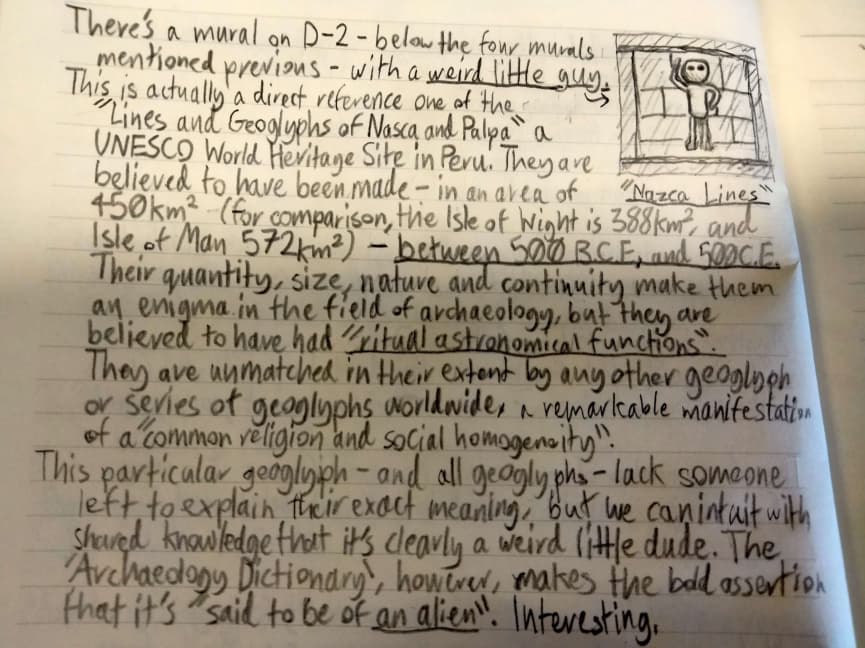 There's a mural on D-2 - below the four murals
mentioned previous - with a weird little guy.
This is actually a direct reference one of the
"Lines and Geoglyphs of Nasca and Palpa" a
UNESCO World Heritage Site in Peru. They are
believed to have been made - in an area of
"Nazca Lines"
450km² (for comparison, the Isle of Wight is 388km², and
Isle of Man 572km²) - between 500 B.C.E, and 500C.E.
Their quantity, size, nature and continuity make them
an enigma in the field of archaeology, but they are
believed to have had "ritual astronomical functions".
They are unmatched in their extent by any other geoglyph
or series of geoglyphs worldwide, a remarkable manifestation
of a "common religion and social homogeneity".
This particular geoglyph - and all geoglyphs - lack someone
left to explain their exact meaning, but we can intuit with
shared knowledge that it's clearly a weird little dude. The
'Archaeology Dictionary', however, makes the bold assertion
that it's "said to be of an alien". Interesting.